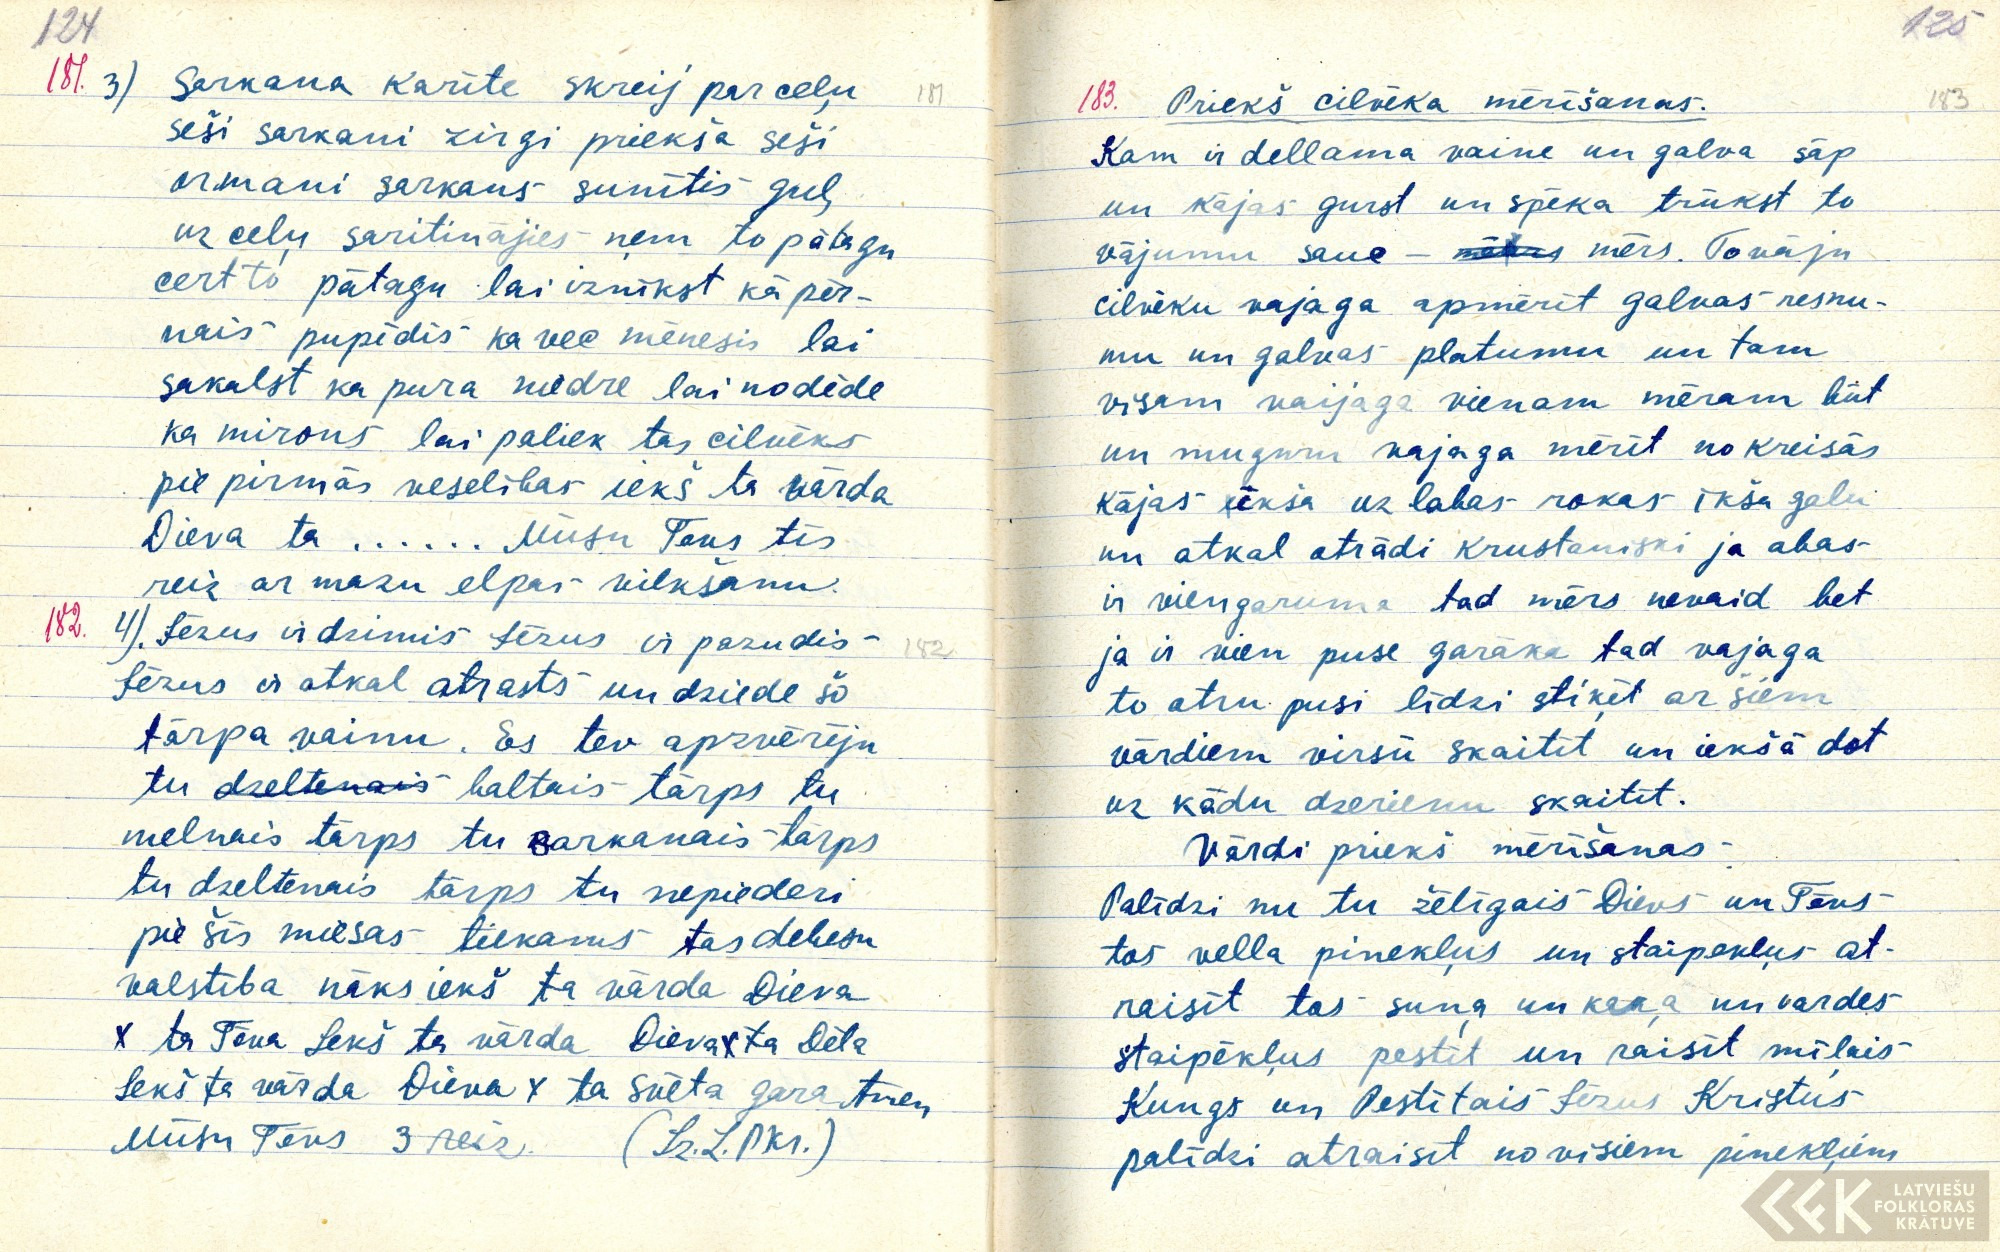 124
181. 3) Sarkana karīte skreij par ceļu 181
seši sarkani zirgi priekša seši
ormani sarkans sunītis guļ
uz ceļu saritinājies ņem to pātagu
cert to pātagu lai iznīkst kā pēr-
nais pupēdis ka vec mēnesis lai
sakalst ka pura niedre lai nodēde
ka mirons lai paliek tas cilvēks
pie pirmās veselības iekš ta vārda
Dieva ta ...... Mūsu Tēvs trīs
reiz ar mazu elpas vilkšanu.
182. 4). Jēzus ir dzimis Jēzus ir pazudis 182
Jēzus ir atkal atrasts un dziede šo
tārpa vainu. Es tev apzvērēju
tu dzeltenais baltais tārps tu
melnais tārps tu sarkanais tārps
tu dzeltenais tārps tu nepiederi
pie šīs miesas tiekams tas debesu
valstība nāks iekš ta vārda Dieva
x ta Tēva Iekš ta vārda Dieva x ta Dēla
Iekš ta vārda Dieva x ta svēta gara Amen
Mūsu Tēvs 3 reiz. (Iz. L. Pkr.)
125
183. Priekš cilvēka mērīšanas. 183
Kam ir dellama vaine un galva sāp
un kājas gurst un spēka trūkst to
vājumu sauc – mērs. To vāju
cilvēku vajaga apmērīt galvas resnu-
mu un galvas platumu un tam
visam vaijaga vienam mēram būt
un muguru vajaga mērīt no kreisās
kājas īkša uz labas rokas īkša galu
un atkal otrādi krustaniski ja abas
ir viengaruma tad mērs nevaid bet
ja ir vien puse garāka tad vajaga
to otru pusi līdzi stiķēt ar šiem
vārdiem virsū skaitīt un iekšā dot
uz kādu dzerienu skaitīt.
Vārdi priekš mērīšanas
Palīdzi nu tu žēlīgais Dievs un Tēvs
tos vella pinekļus un staipekļus at-
raisīt tos suņa un kaķa un vardes
staipēkļus pestīt un raisīt mīļais
Kungs un Pestītais Jēzus Kristus
palīdzi atraisīt no visiem pinekļiem
LFK LATVIEŠU
FOLKLORAS
KRĀTUVE